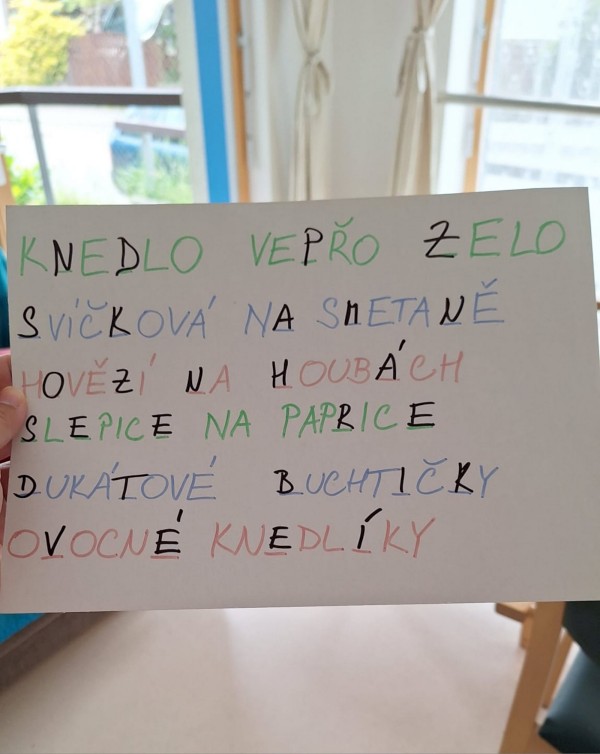 KNEDLO VEPŘO ZELO
SVÍČKOVÁ NA SMETANĚ
HOVĚZÍ NA HOUBÁCH
SLEPICE NA PAPRICE
DUKÁTOVÉ BUCHTIČKY
OVOCNÉ KNEDLÍKY